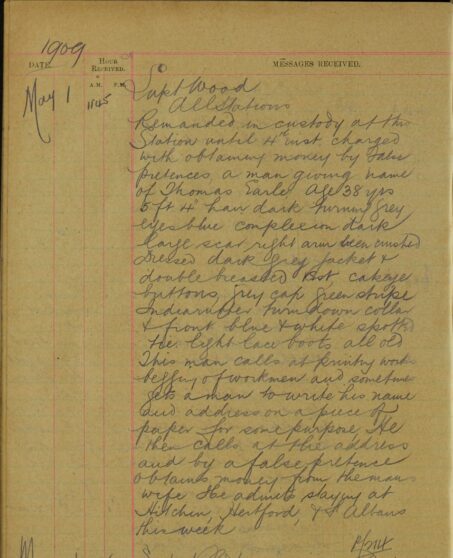 1909
DATE. HOUR RECEIVED. MESSAGES RECEIVED.
A.M. P.M.
May 1 1145 Supt Wood
All Stations
Remanded in custody at this
Station until 4th inst, charged
with obtaining money by false
pretences, a man giving name
of Thomas Earle Age 38 yrs
5 ft 4 hair dark turning grey
eyes blue complexion dark
large scar right arm been crushed
Dressed dark grey jacket &
double breasted vest
buttons, grey cap green stripe
Indiarubber turn down collar
& front blue & white spotted
tie light lace boots all old
This man calls at printing works
begging of workmen and sometimes
gets a man to write his name
and address on a piece of
paper for some purpose He
then calls at the address
and by a false pretence
obtains money from the mans
wife He admits staying at
Hitchin, Hertford, & St Albans
this week